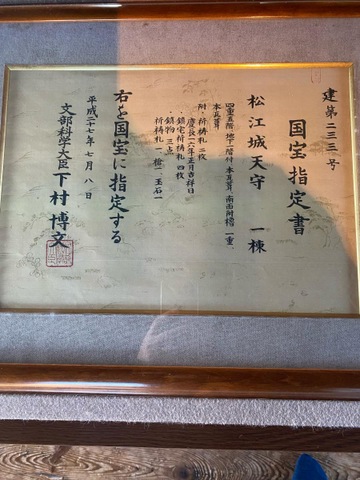 建第二三三号
国宝指定書
松江城天守 一棟
四重五階 地下一階付 本瓦葺、南面附櫓 一重、
本瓦葺
附・祈祷札 二枚
慶長一六年正月吉祥日
鎮宅祈祷札 四枚
鎮物 三点
祈祷札 一、槍一、玉石一
右を国宝に指定する
平成二十七年七月八日
文部科学大臣 下村博文